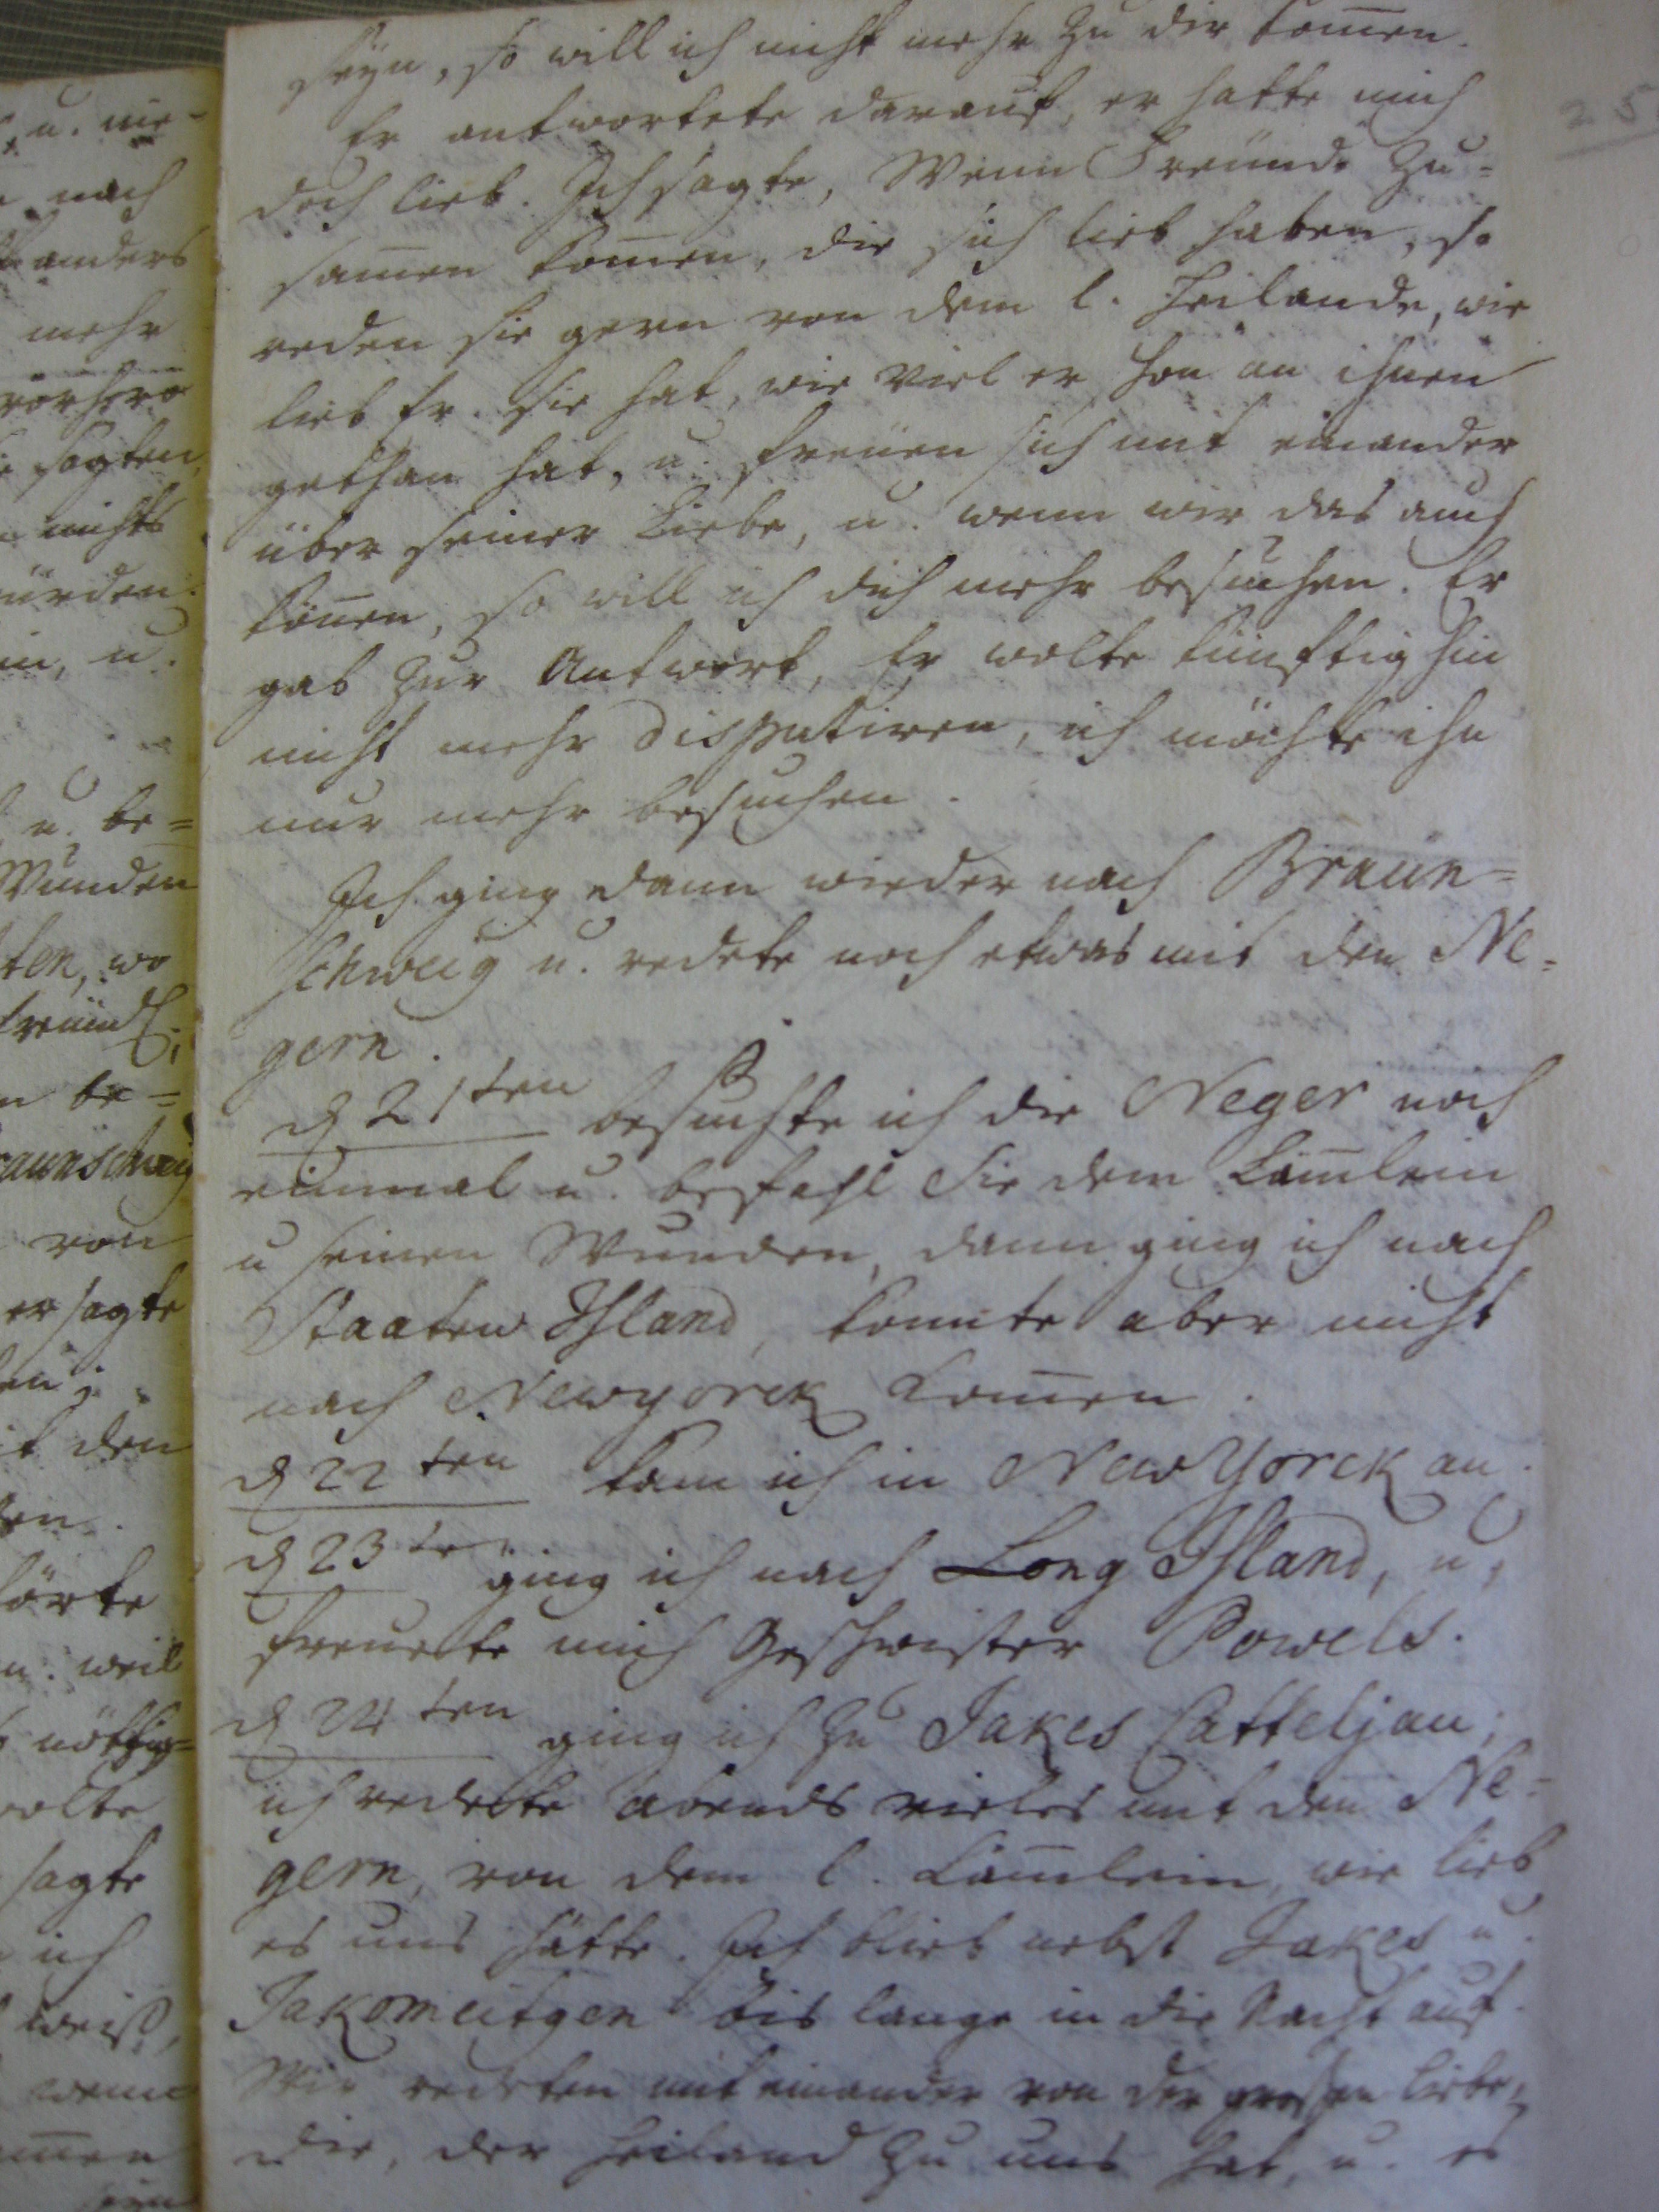 seyn, so will ich nicht mehr zu dir kom̄en.
Er antwortete darauf, er hatte mich
doch lieb. Ich sagte, Wenn Freunde zu=
sam̄en kom̄en, die sich lieb haben, so
reden sie gern von dem l. Heilande, wie
lieb Er sie hat, wie viel er schon an ihnen
gethan hat, u. freuen sich mit einander
über seiner Liebe, u. wenn wir das auch
kön̄en, so will ich dich mehr besuchen. Er
gab zur Antwort, Er wolte künftig hin
nicht mehr disputiren, ich möchte ihn
nur mehr besuchen.
Ich ging dann wieder nach Braun=
schweig u. redete noch etwas mit den Ne=
gern.
d 21ten besuchte ich die Neger noch
einmal u. befahl Sie dem Läm̄lein
u seinen Wunden, dann ging ich nach
Staaten Island, konnte aber nicht
nach Newyorck kom̄en.
d 22ten kam ich in New Yorck an.
d 23ten ging ich nach Long Island, u.
freuete mich Geschwister Powels.
d 24ten ging ich zu Jakes Catteljau;
ich redete abends vieles mit den Ne=
gern, von dem l. Läm̄lein, wie lieb
es uns hätte. Ich blieb nebst Jakes u.
Jakomeitgen bis lange in die Nacht auf.
Wir redeten mit einander von der grossen Liebe,
die, der Heiland zu uns hat, u. es